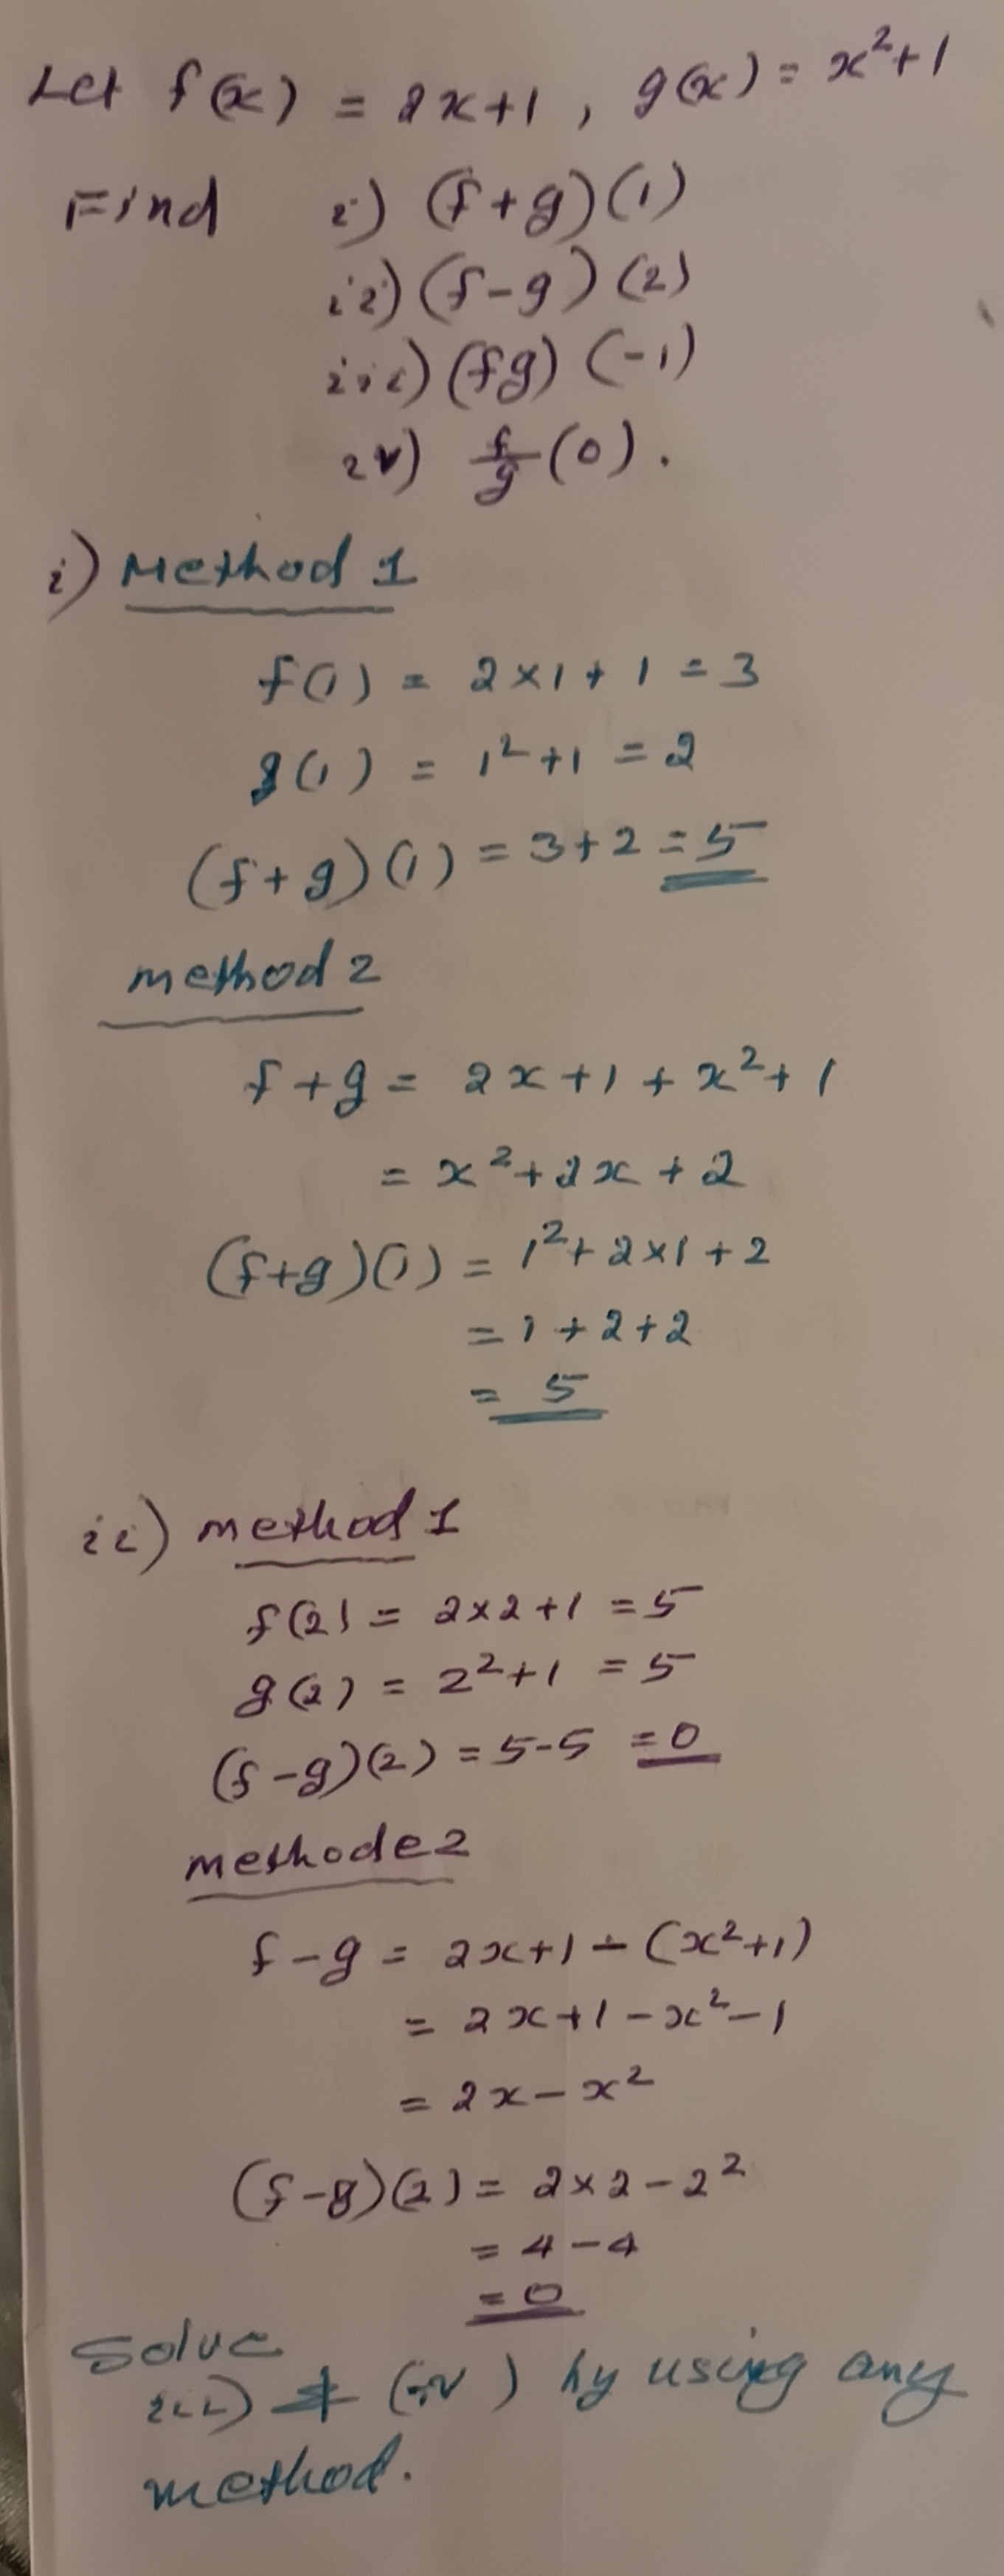 Let f(x) = 2x+1, g(x) = x²+1
Find i) (f+g)(1)
ii) (f-g)(2)
iii) (fg)(-1)
iv) f/g (0).
i) Method 1
f(1) = 2×1+1 = 3
g(1) = 1²+1 = 2
(f+g)(1) = 3+2 = 5
method 2
f+g = 2x+1+x²+1
= x²+2x+2
(f+g)(1) = 1²+2×1+2
= 1+2+2
= 5
ii) method 1
f(2) = 2×2+1 = 5
g(2) = 2²+1 = 5
(f-g)(2) = 5-5 = 0
methode 2
f-g = 2x+1-(x²+1)
= 2x+1-x²-1
= 2x-x²
(f-g)(2) = 2×2-2²
= 4-4
= 0
Solve
iii) & (iv) by using any
method.